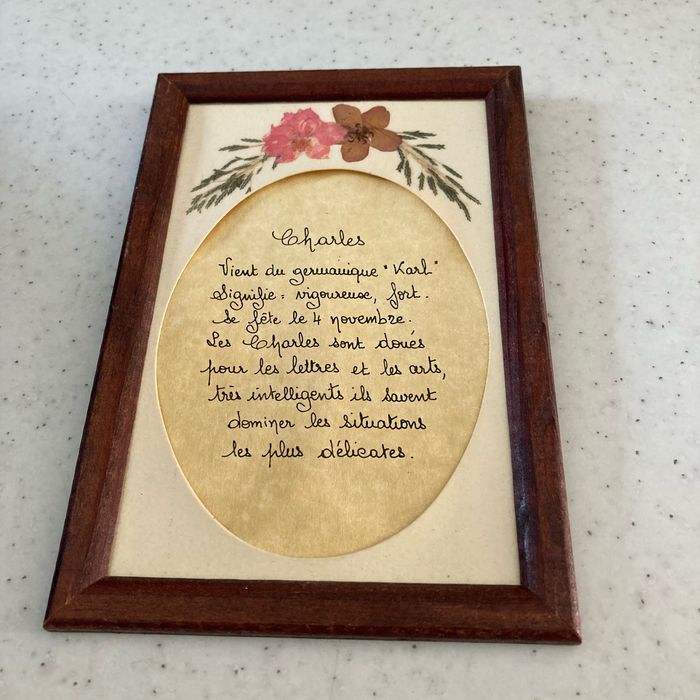 Charles
Vient du germanique "Karl"
Signifie : vigoureuse, fort.
Se fête le 4 novembre.
Les Charles sont doués
pour les lettres et les arts,
très intelligents ils savent
dominer les situations
les plus délicates.